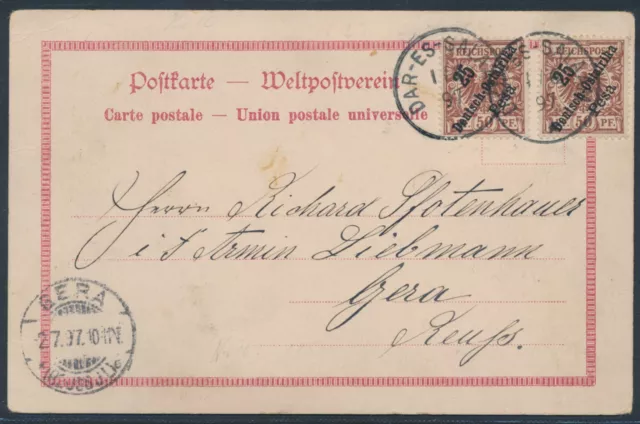 DAR-ES-S
REICHSPOST
25
Deutsch-Ostafrika
Pesa
50 PF.
REICHSPOST
25
Deutsch-Ostafrika
Pesa
50 PF.
Postkarte — Weltpostverein
Carte postale — Union postale universelle
Herrn Richard Pfotenhauer
i/ Armin Liebmann
Gera
Reuss.
GERA
2.7.97.
(REUSS J.L.)